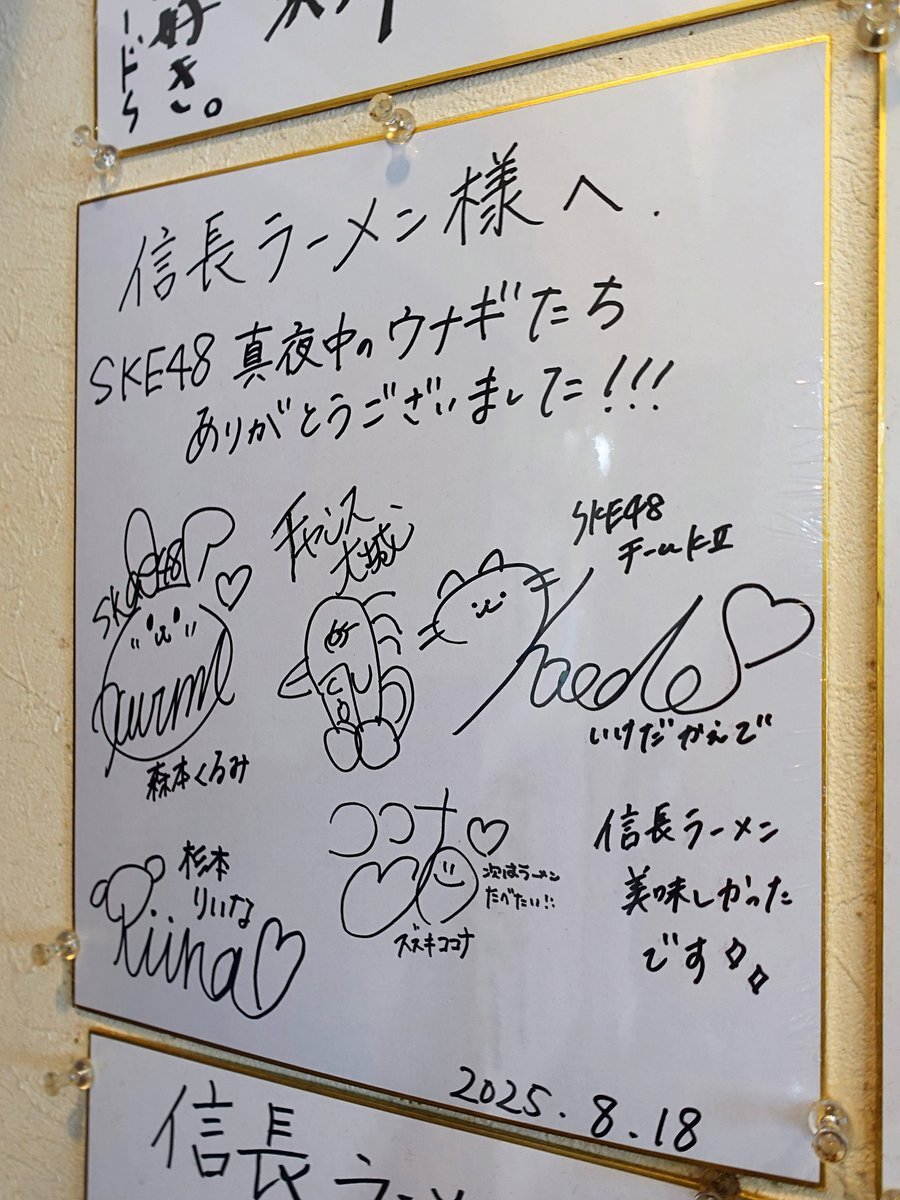 好き。
ードル
信長ラーメン様へ.
SKE48 真夜中のウナギたち
ありがとうございました!!!
SKE48
kurumi
森本くるみ
チャンス
大城
SKE48
チームKⅡ
kaede
いけだかえで
杉本
りいな
Riina
ココナ
次はラーメン
たべたい!!
スズキココナ
信長ラーメン
美味しかった
です
2025.8.18
信長ラーメン